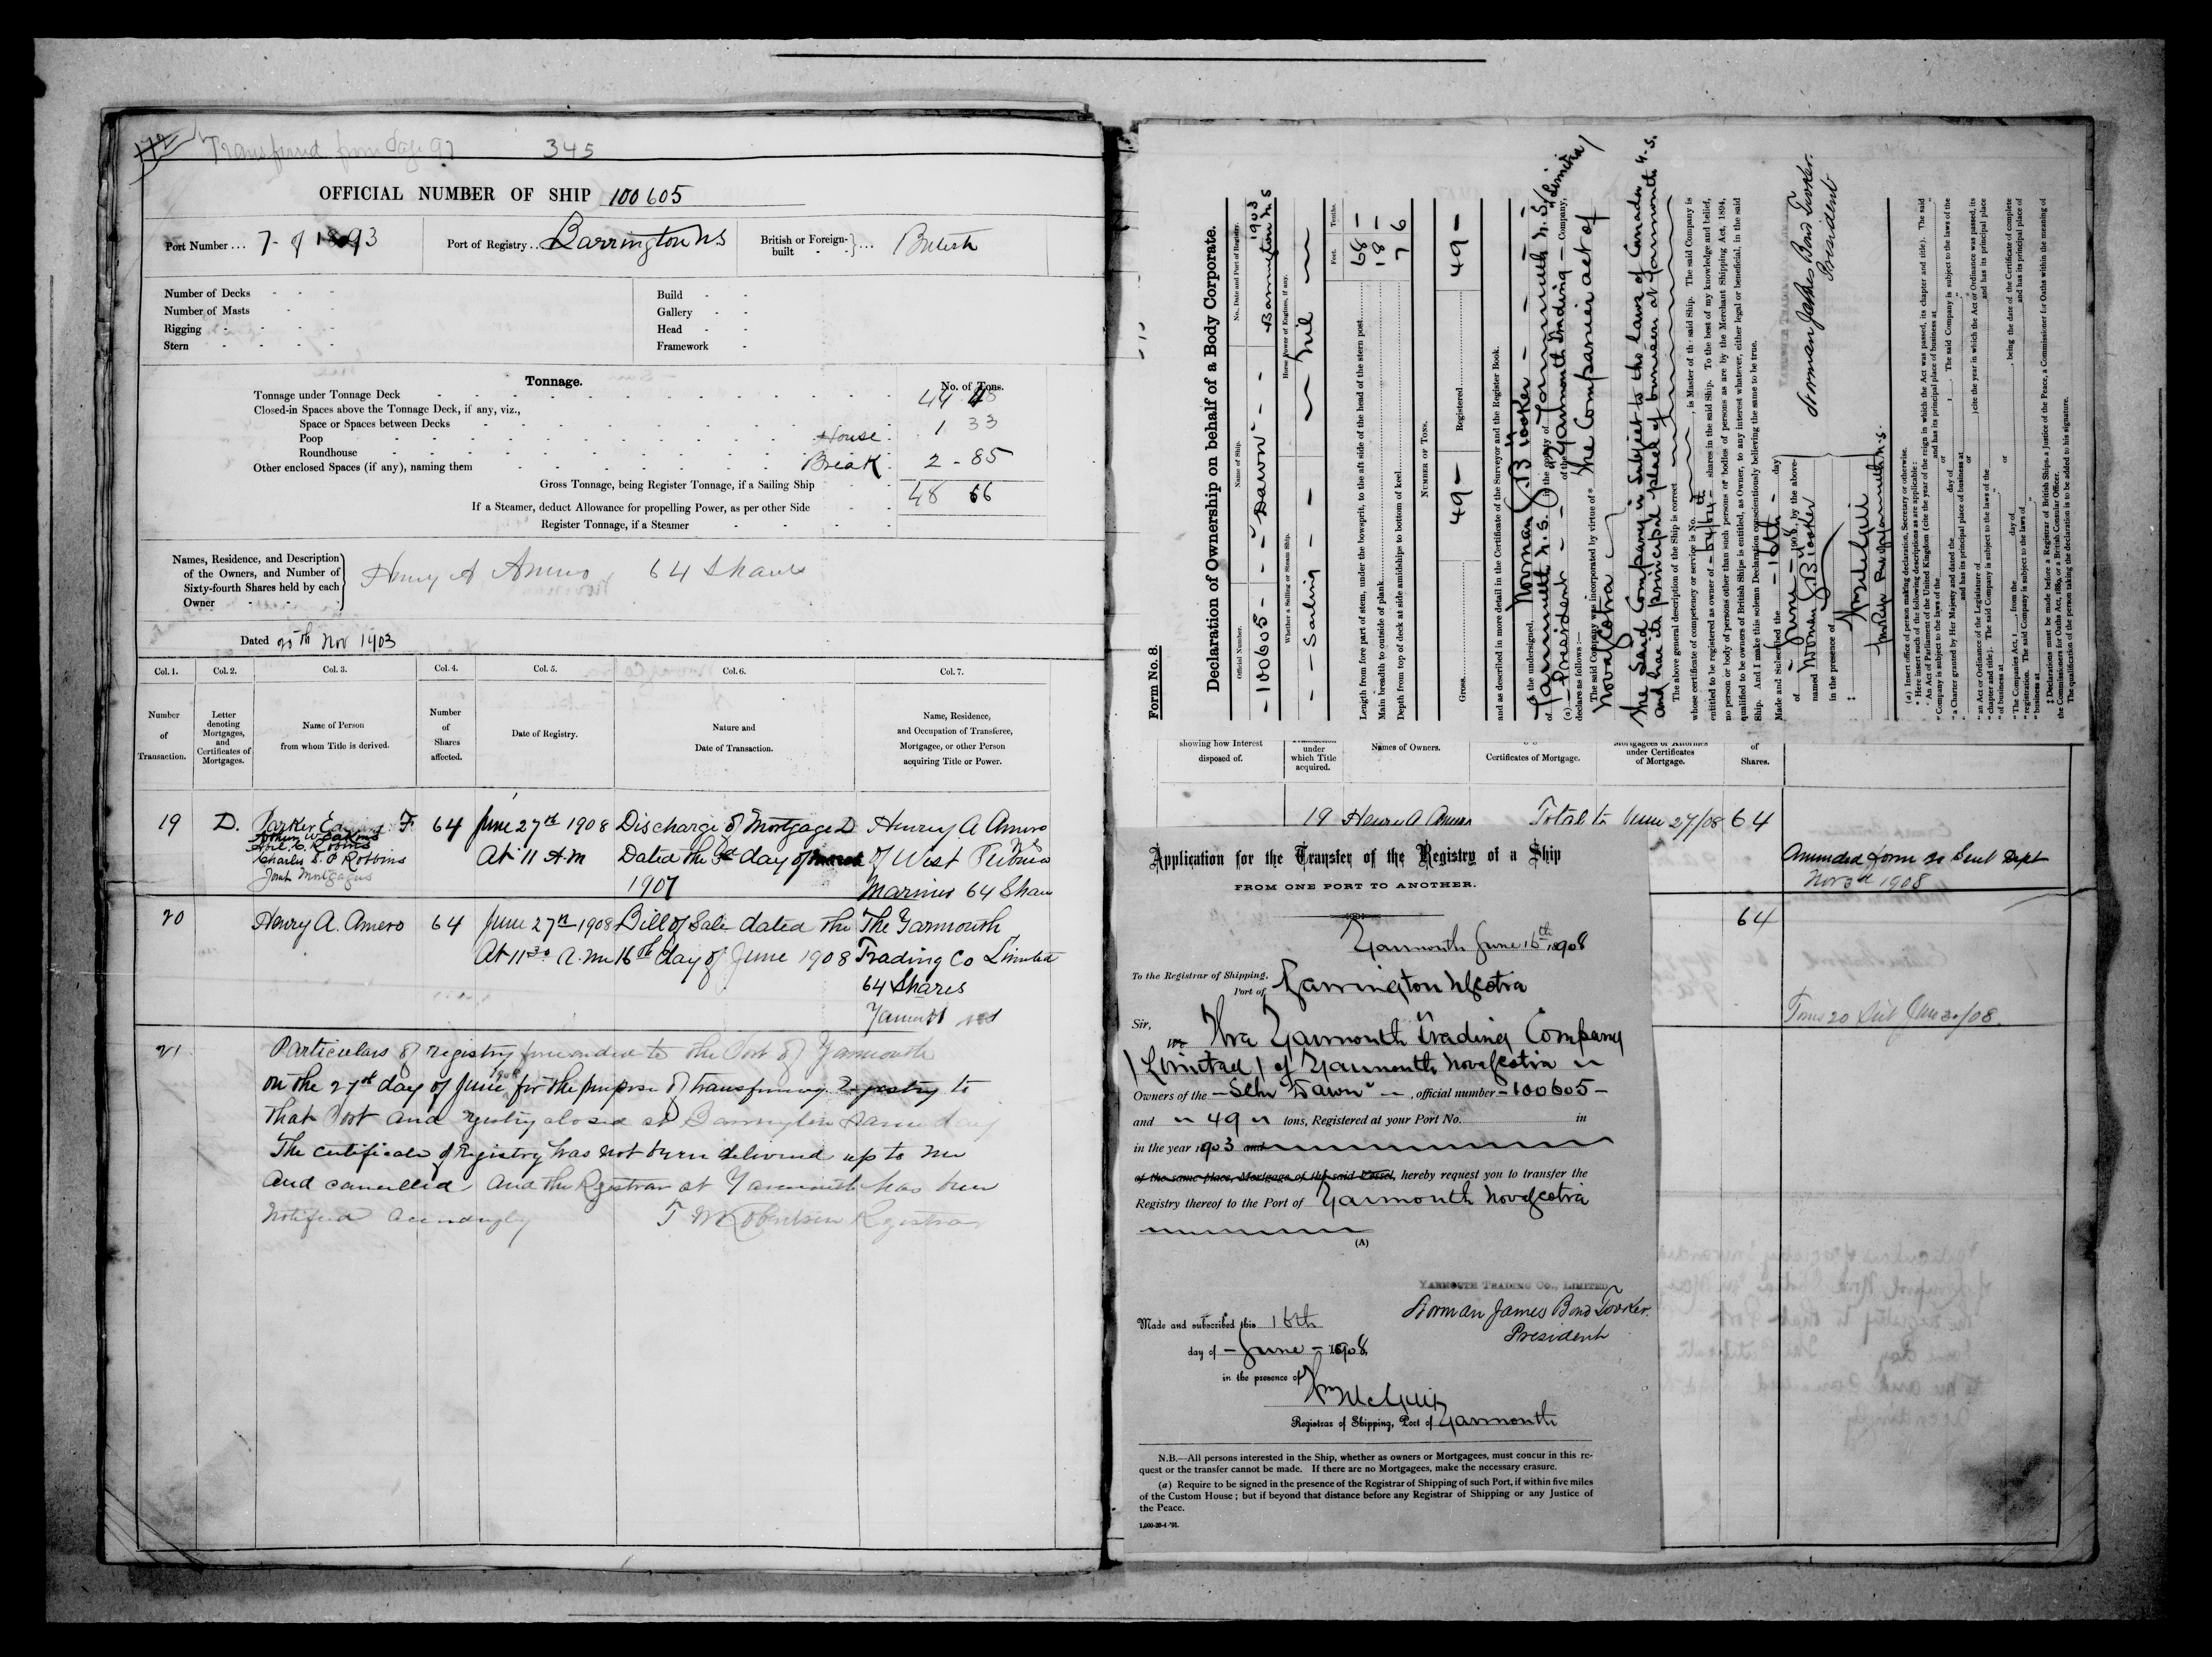 172
Transferred from Page 97 345
OFFICIAL NUMBER OF SHIP 100605
Port Number ... 7- of 1893
Port of Registry .. Barrington N S
British or Foreign-built - - } ... British
Number of Decks
Number of Masts
Rigging
Stern
Build
Gallery
Head
Framework
Tonnage.
No. of Tons.
Tonnage under Tonnage Deck 44 48
Closed-in Spaces above the Tonnage Deck, if any, viz.,
Space or Spaces between Decks 1 33
Poop House
Roundhouse
Other enclosed Spaces (if any), naming them Break 2 - 85
Gross Tonnage, being Register Tonnage, if a Sailing Ship 48 66
If a Steamer, deduct Allowance for propelling Power, as per other Side
Register Tonnage, if a Steamer
Names, Residence, and Description
of the Owners, and Number of
Sixty-fourth Shares held by each
Owner
Henry A Amero 64 Shares
Dated 25th Nov 1903
Col. 1. Col. 2. Col. 3. Col. 4. Col. 5. Col. 6. Col. 7.
Number of Transaction.
Letter denoting Mortgages, and Certificates of Mortgages.
Name of Person from whom Title is derived.
Number of Shares affected.
Date of Registry.
Nature and Date of Transaction.
Name, Residence, and Occupation of Transferee, Mortgagee, or other Person acquiring Title or Power.
19 D. Parker F. 64 June 27th 1908 Discharge of Mortgage D Henry A Amero
Charles S. P Robbins At 11 A M Dated the 3d day of March of West Pubnico
Joint Mortgagees 1907 Mariner 64 Shares
20 Henry A. Amero 64 June 27th 1908 Bill of Sale dated the The Yarmouth
At 11 30 A. M 16th day of June 1908 Trading Co Limited
64 Shares
Yarmouth NS
21 Particulars of registry forwarded to the Port of Yarmouth
on the 27th day of June 1908 for the purpose of transferring Registry to
that Port and registry closed at Barrington same day
The certificate of registry has not been delivered up to me
and cancelled and the Registrar at Yarmouth has been
notified accordingly T W Robertson Registrar
Form No. 8.
Declaration of Ownership on behalf of a Body Corporate.
Official Number. Name of Ship. No. Date and Port of Registry.
- 100605 - - - "Dawn" - - 1903 Barrington N S
Whether a Sailing or Steam Ship. Horse Power of Engines, if any.
- - Sailing - - Nil
Feet. Tenths.
Length from fore part of stem, under the bowsprit, to the aft side of the head of the stern post 68 -
Main breadth to outside of plank 18 -
Depth from top of deck at side amidships to bottom of keel 7 6
NUMBER OF TONS.
Gross 49 - Registered 49 -
and as described in more detail in the Certificate of the Surveyor and the Register Book.
I, the undersigned, Norman J. B Tooker
of Yarmouth N.S. in the county of Yarmouth N. S.
(a) - President - of the "Yarmouth Trading - Company, Limited
declare as follows :—
The said Company was incorporated by virtue of * the Companies act of
Nova Scotia
the said Company is subject to the laws of Canada
and has its principal place of business at Yarmouth N. S.
The above general description of the Ship is correct
whose certificate of competency or service is No. , is Master of the said Ship. The said Company is
entitled to be registered as owner of - 64/64th - shares in the said Ship. To the best of my knowledge and belief,
no person or body of persons other than such persons or bodies of persons as are by the Merchant Shipping Act, 1894,
qualified to be owners of British Ships is entitled, as Owner, to any interest whatever, either legal or beneficial, in the said
Ship. And I make this solemn Declaration conscientiously believing the same to be true.
Made and Subscribed the - 16th - day
of - June - 1908, by the above-
named Norman J B Tooker
in the presence of
Norman James Bond Tooker.
President
(a) Insert office of person making declaration, Secretary or otherwise.
* Here insert such of the following descriptions as are applicable:
‡ Declarations must be made before a Registrar of British Ships, a Justice of the Peace, a Commissioner for Oaths within the meaning of
the Commissioners for Oaths Act, 1889, or a British Consular Officer.
The qualification of the person taking the declaration is to be added to his signature.
showing how Interest disposed of.
under which Title acquired.
Names of Owners.
Certificates of Mortgage.
Mortgagees or Attornies under Certificates of Mortgage.
of Shares.
19 Henry A Amero Total to June 27/08 64
Amended form 20 Sent Dept
Nov 3d 1908
64
Form 20 Sent June 30/08.
Application for the Transfer of the Registry of a Ship
FROM ONE PORT TO ANOTHER.
Yarmouth June 16th 1908
To the Registrar of Shipping,
Port of Barrington N Scotia
Sir,
We The Yarmouth Trading Company
(Limited) of Yarmouth Nova Scotia
Owners of the - Schr "Dawn" - , official number - 100605 -
and " 49 " tons, Registered at your Port No. in
in the year 1903 and
of the same place, Mortgage of the said Vessel, hereby request you to transfer the
Registry thereof to the Port of Yarmouth Nova Scotia
(A)
YARMOUTH TRADING CO., LIMITED
Norman James Bond Tooker.
President
Made and subscribed this 16th
day of - June - 1908
in the presence of
Registrar of Shipping, Port of Yarmouth
N.B.—All persons interested in the Ship, whether as owners or Mortgagees, must concur in this re-
quest or the transfer cannot be made. If there are no Mortgagees, make the necessary erasure.
(a) Require to be signed in the presence of the Registrar of Shipping of such Port, if within five miles
of the Custom House ; but if beyond that distance before any Registrar of Shipping or any Justice of
the Peace.